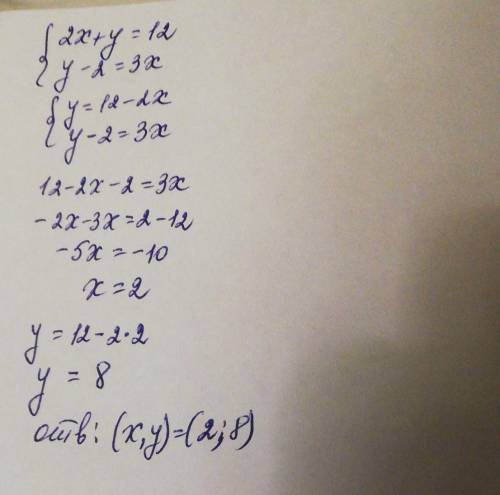 { 2x+y=12
y-2=3x
{ y=12-2x
y-2=3x
12-2x-2=3x
-2x-3x=2-12
-5x=-10
x=2
y=12-2·2
y = 8
отв: (x,y)=(2;8)